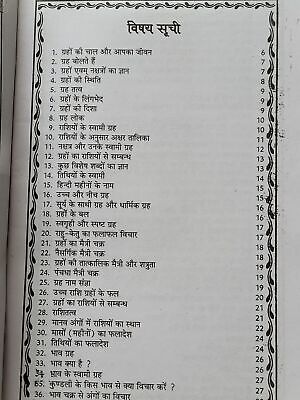 विषय सूची
1. ग्रहों की चाल और आपका जीवन 6
2. ग्रह बोलते हैं 7
3. ग्रहों एवम् नक्षत्रों का ज्ञान 7
4. ग्रहों की स्थिति 8
5. ग्रह तत्व 9
6. ग्रहों के लिंगभेद 9
7. ग्रहों की दिशा 9
8. ग्रह लोक 10
9. राशियों के स्वामी ग्रह 10
10. राशियों के अनुसार अक्षर तालिका 10
11. नक्षत्र और उनके स्वामी ग्रह 12
12. ग्रहों का राशियों से सम्बन्ध 12
13. कुछ विशेष शब्दों का ज्ञान 13
14. तिथियों के स्वामी 13
15. हिन्दी महीनों के नाम 15
16. उच्च और नीच ग्रह 16
17. सूर्य के साथी ग्रह और धार्मिक ग्रह 16
18. ग्रहों के बल 17
19. स्वगृही और स्पष्ट ग्रह 16
20. राहु-केतु का फलाफल विचार 19
21. ग्रहों का मैत्री चक्र 19
22. नैसर्गिक मैत्री चक्र
23. ग्रहों की तात्कालिक मैत्री और शत्रुता
24. पंचधा मैत्री चक्र
25. ग्रह नाम संज्ञा 21
26. उच्च राशि ग्रहों के फल
27. ग्रहों का राशियों से सम्बन्ध
28. राशितत्व
29. मानव अंगों में राशियों का स्थान 22
30. मासों (महीनों) का फलादेश 24
31. तिथियों का फलादेश
32. भाव ग्रह
33. भाव क्या है ?
34. भाव के स्वामी ग्रह
35. कुण्डली के किस भाव से क्या विचार करें ? 26
36. भाव चक्र से अंगों का विचार 27